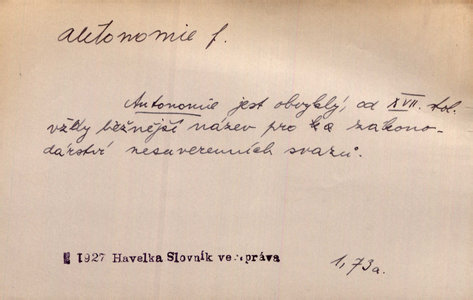 autonomie f.
Autonomie jest obvyklý, od XVII. stol.
vždy běžnější název pro zákono-
dárství nesuverenních svazů.
1927 Havelka Slovník ve. práva
1, 73a.